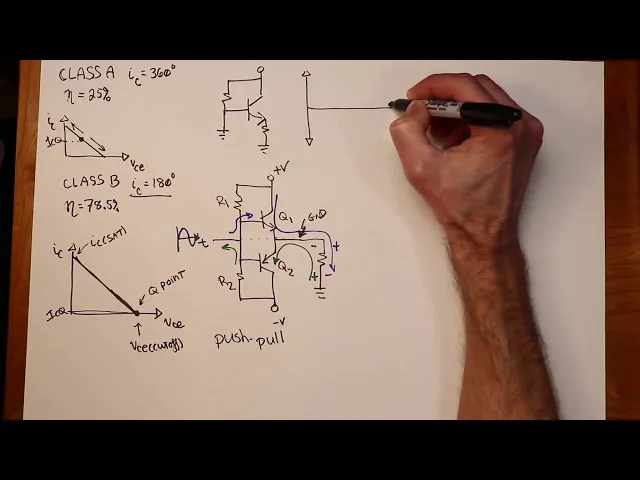 CLASS A i_c = 360°
η = 25%
i_c
I_CQ
V_ce
CLASS B i_c = 180°
η = 78.5%
i_c
i_c(SAT)
Q POINT
I_CQ
V_ce
V_ce(cutoff)
+V
R_1
Q_1
GND
+
-
-
+
R_2
Q_2
-V
push-pull